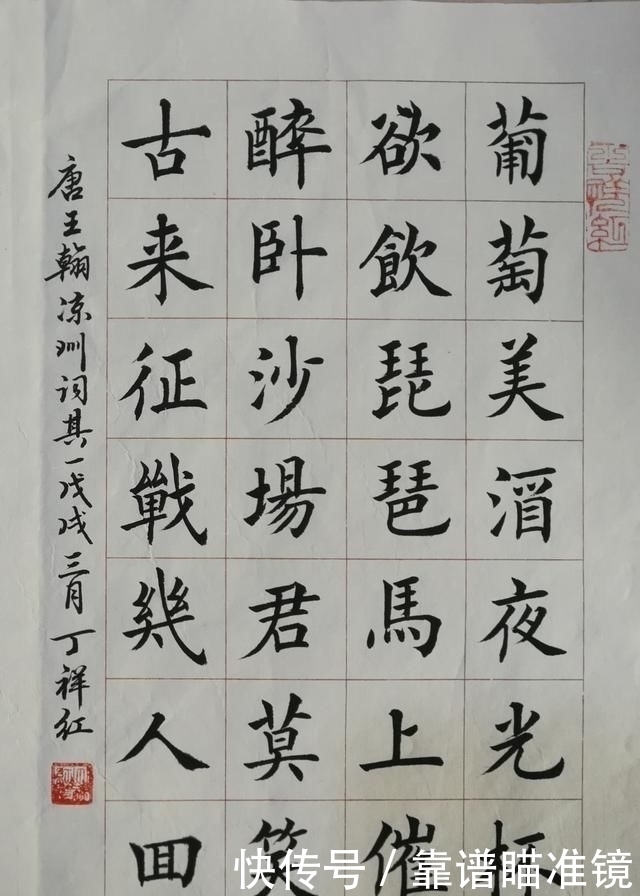 葡萄美酒夜光杯
欲飲琵琶馬上催
醉卧沙場君莫笑
古来征戰幾人回
唐王翰凉州词其一戊戌三月丁祥红
快传号 / 靠谱瞄准镜